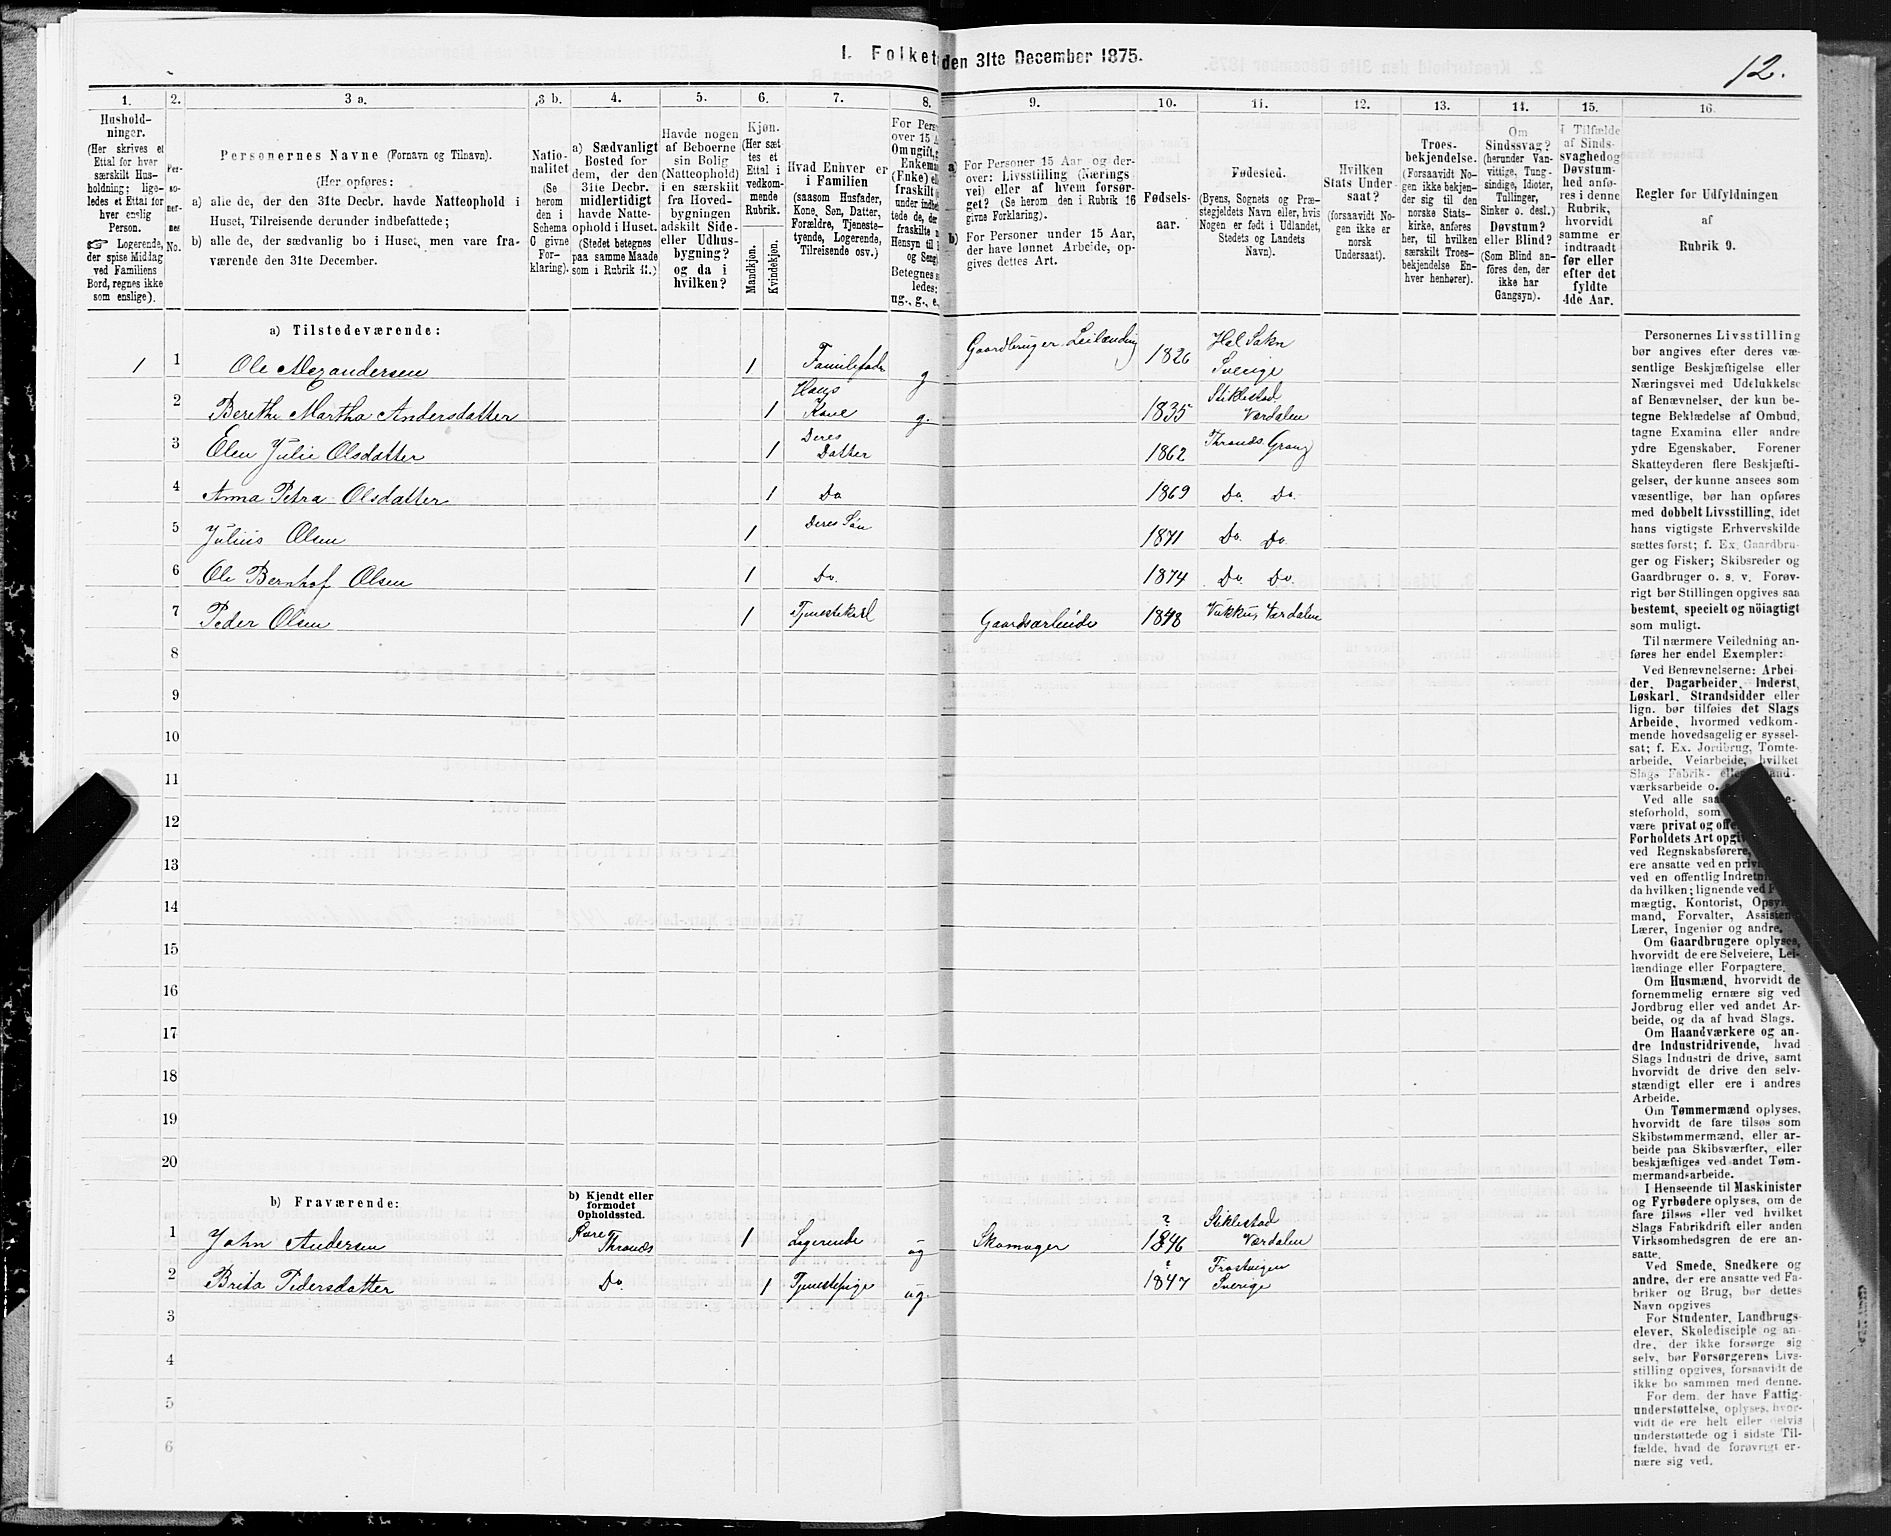 I. Folket den 31te December 1875.
12.
1. 2. 3 a. 3 b. 4. 5. 6. 7. 8. 9. 10. 11. 12. 13. 14. 15. 16.
Hushold-
ninger.
(Her skrives et
Ettal for hver
særskilt Hus-
holdning; lige-
ledes et Ettal for
hver enslig
Person.
☞ Logerende,
der spise Middag
ved Familiens
Bord, regnes ikke
som enslige).
Per-
so-
ner-
nes
No.
Personernes Navne (Fornavn og Tilnavn).
(Her opføres:
a) alle de, der den 31te Decbr. havde Natteophold i
Huset, Tilreisende derunder indbefattede;
b) alle de, der sædvanlig bo i Huset, men vare fra-
værende den 31te December.
Natio-
nalitet
(Se
herom
den i
Schema
C givne
For-
klaring).
a) Sædvanligt
Bosted for
dem, der den
31te Decbr.
midlertidigt
havde Natte-
ophold i Huset.
(Stedet betegnes
paa samme Maade
som i Rubrik 11.)
Havde nogen
af Beboerne
sin Bolig
(Natteophold)
i en særskilt
fra Hoved-
bygningen
adskilt Side-
eller Udhus-
bygning?
og da i
hvilken?
Kjøn.
(Her sæt-
tes et
Ettal i
vedkom-
mende
Rubrik.
Mandkjøn.
Kvindekjøn.
Hvad Enhver er
i Familien
(saasom Husfader,
Kone, Søn, Datter,
Forældre, Tjeneste-
tyende, Logerende,
Tilreisende osv.)
For Pers
over 15 A
Om ugift, g
Enkema
(Enke) ell
fraskilt
under indbet
tede de, der
fraskilte
Hensyn til
og Seng
Betegnes s
ledes:
ug., g., e.
a) For Personer 15 Aar og der-
over: Livsstilling (Nærings
vei) eller af hvem forsør-
get? (Se herom den i Rubrik 16
givne Forklaring).
b) For Personer under 15 Aar,
der have lønnet Arbeide, op-
gives dettes Art.
Fødsels-
aar.
Fødested.
(Byens, Sognets og Præ-
stegjeldets Navn eller, hvis
Nogen er født i Udlandet,
Stedets og Landets
Navn).
Hvilken
Stats Under-
saat?
(forsaavidt No-
gen ikke er
norsk
Undersaat).
Troes-
bekjendelse.
(Forsaavidt No-
gen ikke bekjen-
der sig til den
norske Stats-
kirke, anføres
her, til hvilken
særskilt Troes-
bekjendelse En-
hver henhører).
Om
Sindssvag?
(herunder Van-
vittige, Tung-
sindige, Idioter,
Tullinger,
Sinker o. desl.)
Døvstum?
eller Blind?
(Som Blind an-
føres den, der
ikke har
Gangsyn).
I Tilfælde
af Sinds-
svaghed og
Døvstum-
hed anfø-
res i denne
Rubrik,
hvorvidt
samme er
indtraadt
før eller
efter det
fyldte
4de Aar.
Regler for Udfyldningen
af
Rubrik 9.
a) Tilstedeværende:
1 1 Ole Alexandersen 1 Familiefader g Gaardbruger Leilænding 1826 Hel Sokn Sverige
2 Berethe Martha Andersdatter 1 Hans Kone g. 1835 Stiklestad Værdalen
3 Elen Julie Olsdatter 1 Deres Datter 1862 Thronds Grong
4 Anna Petra Olsdatter 1 Do 1869 Do. Do.
5 Julius Olsen 1 Deres Søn 1871 Do. Do.
6 Ole Bernhof Olsen 1 Do. 1874 Do. Do.
7 Peder Olsen 1 Tjenestekarl Gaardsarbeide 1848 Vukku, Værdalen
8
9
10
11
12
13
14
15
16
17
18
19
20
b) Fraværende:
b) Kjendt eller
formodet
Opholdssted.
1 John Andersen Thronds 1 Logerende ug Skomager ? 1846 Stiklestad Værdalen
2 Brita Pedersdatter Do 1 Tjenestepige ug. ? 1847 Frostvigen Sverige
3
4
5
6
Personernes Livsstilling
bør angives efter deres væ-
sentlige Beskjæftigelse eller
Næringsvei med Udelukkelse
af Benævnelser, der kun be-
tegne Beklædelse af Ombud,
tagne Examina eller andre
ydre Egenskaber. Forener
Skatteyderen flere Beskjæfti-
gelser, der kunne ansees som
væsentlige, bør han opføres
med dobbelt Livsstilling, idet
hans vigtigste Erhvervskilde
sættes først; f. Ex. Gaardbru-
ger og Fisker; Skibsreder og
Gaardbruger o. s. v. Forøv-
rigt bør Stillingen opgives saa
bestemt, specielt og nöiagtigt
som muligt.
Til nærmere Veiledning an-
føres her endel Exempler:
Ved Benævnelserne: Arbei-
der, Dagarbeider, Inderst,
Løskarl, Strandsidder eller
lign. bør tilføies det Slags
Arbeide, hvormed vedkom-
mende hovedsagelig er syssel-
sat; f. Ex. Jordbrug, Tomte-
arbeide, Veiarbeide, hvilket
Slags Fabrik- elle
værksarbeide o.
Ved alle saa
steforhold, som
være privat og offe
Forholdets Art opgiv
ved Regnskabsførere,
ere ansatte ved en priv
ved en offentlig Indretni
da hvilken; lignende ved
mægtig, Kontorist, Opsy
mand, Forvalter, Assisten
Lærer, Ingeniør og andre.
Om Gaardbrugere oplyses,
hvorvidt de ere Selveiere, Lei-
lændinge eller Forpagtere.
Om Husmænd, hvorvidt de
fornemmelig ernære sig ved
Jordbrug eller ved andet Ar-
beide, og da af hvad Slags.
Om Haandværkere og an-
dre Industridrivende, hvad
Slags Industri de drive, samt
hvorvidt de drive den selv-
stændigt eller ere i andres
Arbeide.
Om Tømmermænd oplyses,
hvorvidt de fare tilsøs som
Skibstømmermænd, eller ar-
beide paa Skibsværfter, eller
beskjæftiges ved andet Tøm-
mermandsarbeide.
I Henseende til Maskinister
og Fyrbødere oplyses, om de
fare tilsøs eller ved hvilket
Slags Fabrikdrift eller anden
Virksomhedsgren de ere an-
satte.
Ved Smede, Snedkere og
andre, der ere ansatte ved Fa-
briker og Brug, bør dettes
Navn opgives
For Studenter, Landbrugs-
elever, Skoledisciple og an-
dre, der ikke forsørge sig
selv, bør Forsørgerens Livs-
stilling opgives, forsaavidt de
ikke bo sammen med denne.
For dem, der have Fattig-
understøttelse, oplyses, hvor-
vidt de ere helt eller delvis
understøttede og i sidste Til-
fælde, hvad de forøvrigt er-
nære sig ved.